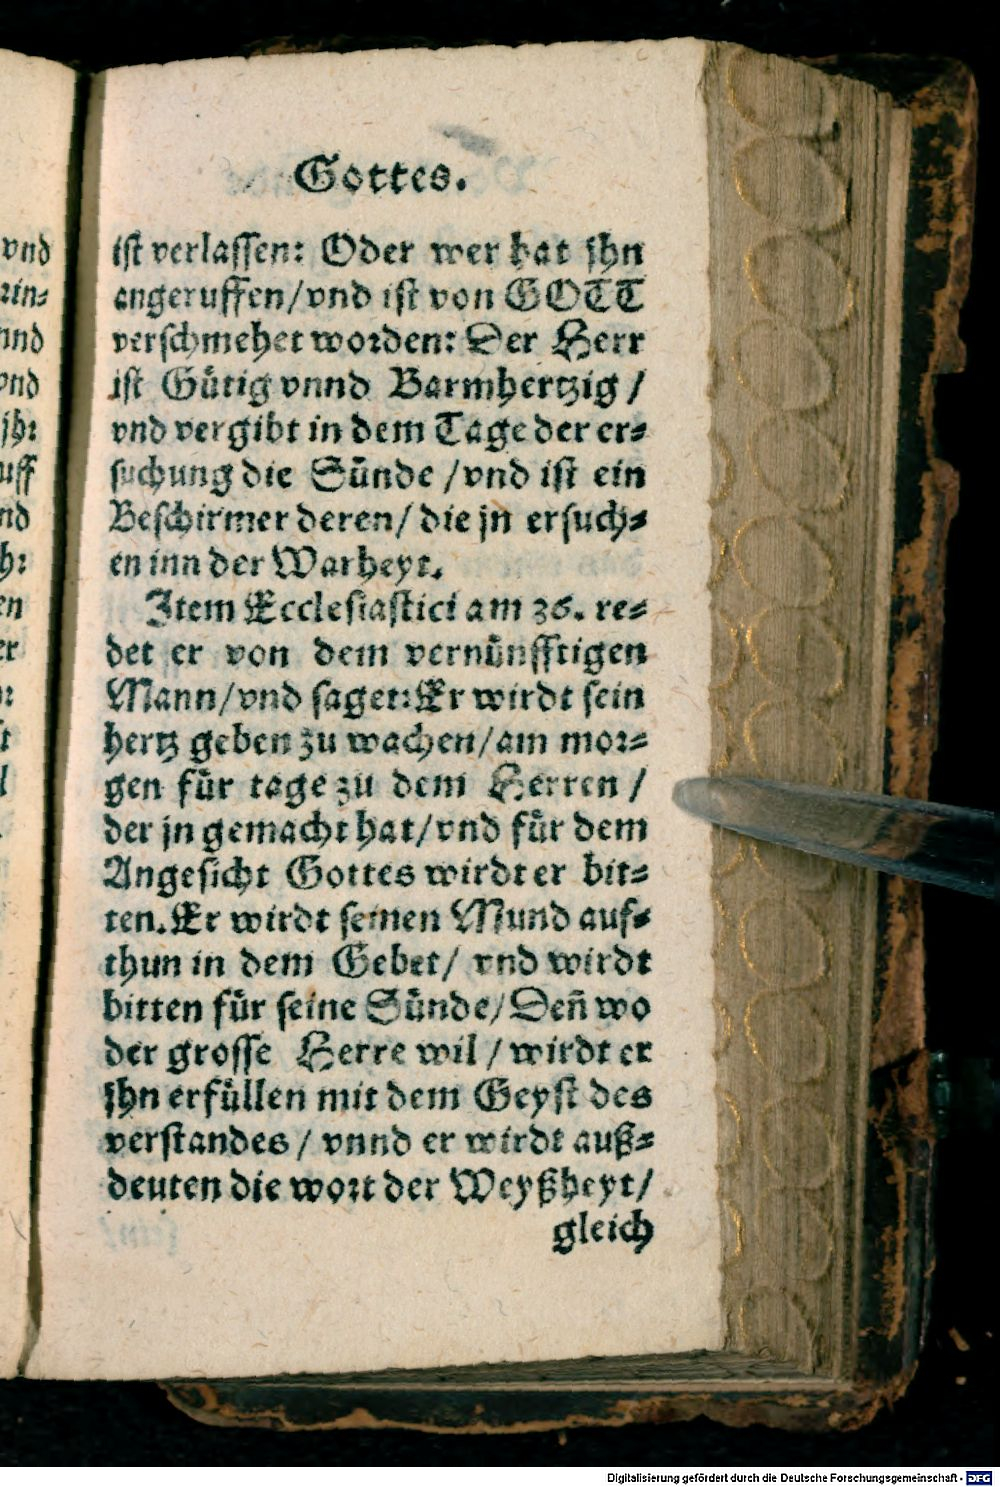 Gottes.
ist verlassen: Oder wer hat jhn
angeruffen/vnd ist von GOTT
verschmehet worden: Der Herr
ist Gütig vnnd Barmhertzig /
vnd vergibt in dem Tage der er-
suchung die Sünde /vnd ist ein
Beschirmer deren/ die jn ersuch-
en inn der Warheyt.
Item Ecclesiastici am 36. re-
det er von dem vernünfftigen
Mann/vnd saget: Er wirdt sein
hertz geben zu wachen/am mor-
gen für tage zu dem Herren /
der jn gemacht hat/vnd für dem
Angesicht Gottes wirdt er bit-
ten. Er wirdt seinen Mund auf-
thun in dem Gebet/ vnd wirdt
bitten für seine Sünde/ Deñ wo
der grosse Herre wil / wirdt er
jhn erfüllen mit dem Geyst des
verstandes / vnnd er wirdt auß-
deuten die wort der Weyßheyt/
gleich
vnd
rin-
nnd
vnd
jhr
uff
nd
hr
en
er
Digitalisierung gefördert durch die Deutsche Forschungsgemeinschaft - DFG